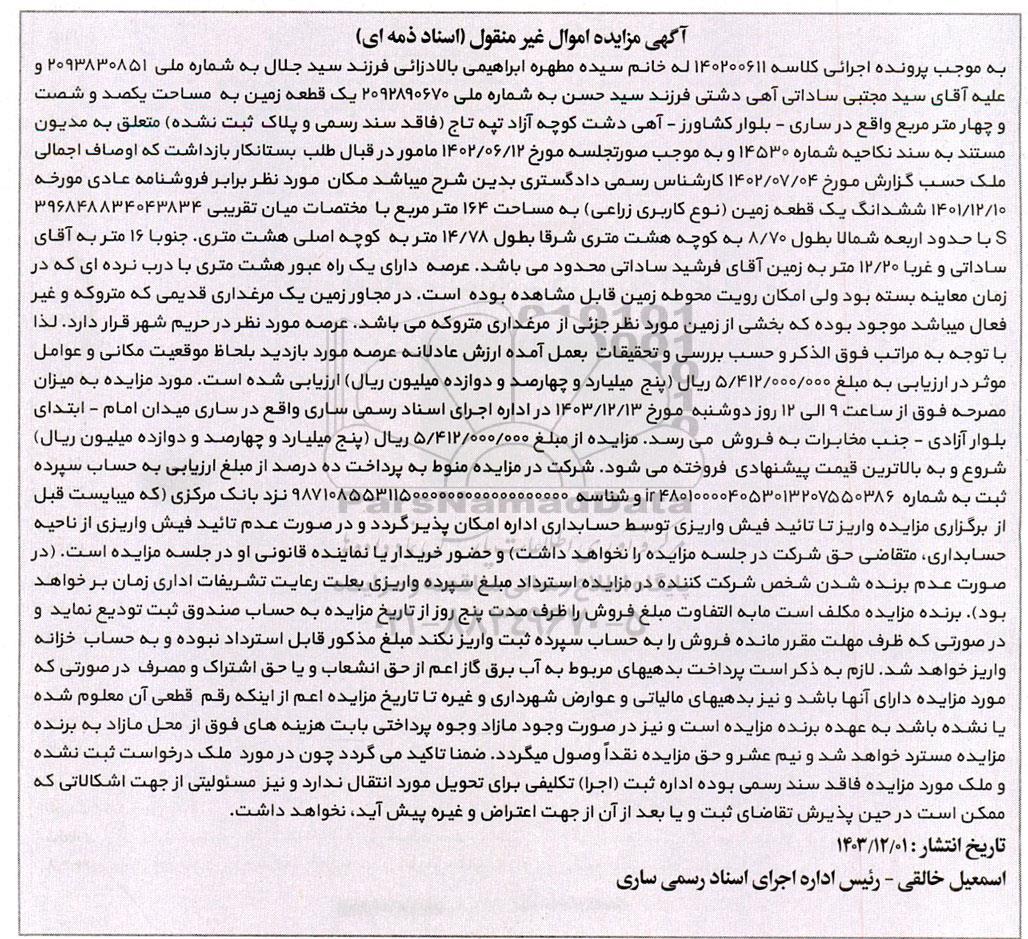 آگهی مزایده اموال غیر منقول (اسناد ذمه ای)
به موجب پرونده اجرائی کلاسه ۱۴۰۲۰۰۶۱۱ له خانم سیده مطهره ابراهیمی بالادزائی فرزند سید جلال به شماره ملی ۲۰۹۳۸۳۰۸۵۱ و
علیه آقای سید مجتبی ساداتی آهی دشتی فرزند سید حسن به شماره ملی ۲۰۹۲۸۹۰۶۷۰ یک قطعه زمین به مساحت یکصد و شصت
و چهار متر مربع واقع در ساری - بلوار کشاورز - آهی دشت کوچه آزاد تپه تاج (فاقد سند رسمی و پلاک ثبت نشده) متعلق به مدیون
مستند به سند نکاحیه شماره ۱۴۵۳۰ و به موجب صورتجلسه مورخ ۱۴۰۲/۰۶/۱۲ مامور در قبال طلب بستانکار بازداشت که اوصاف اجمالی
ملک حسب گزارش مورخ ۱۴۰۲/۰۷/۰۴ کارشناس رسمی دادگستری بدین شرح میباشد مکان مورد نظر برابر فروشنامه عادی مورخه
۱۴۰۱/۱۲/۱۰ ششدانگ یک قطعه زمین (نوع کاربری زراعی) به مساحت ۱۶۴ متر مربع با مختصات میان تقریبی ۳۹۶۸۴۸۸۳۴۰۴۳۸۳۴
S با حدود اربعه شمالا بطول ۸/۷۰ به کوچه هشت متری شرقا بطول ۱۴/۷۸ متر به کوچه اصلی هشت متری. جنوبا ۱۶ متر به آقای
ساداتی و غربا ۱۲/۲۰ متر به زمین آقای فرشید ساداتی محدود می باشد. عرصه دارای یک راه عبور هشت متری با درب نرده ای که در
زمان معاینه بسته بود ولی امکان رویت محوطه زمین قابل مشاهده بوده است. در مجاور زمین یک مرغداری قدیمی که متروکه و غیر
فعال میباشد موجود بوده که بخشی از زمین مورد نظر جزئی از مرغداری متروکه می باشد. عرصه مورد نظر در حریم شهر قرار دارد. لذا
با توجه به مراتب فوق الذکر و حسب بررسی و تحقیقات بعمل آمده ارزش عادلانه عرصه مورد بازدید بلحاظ موقعیت مکانی و عوامل
موثر در ارزیابی به مبلغ ۵/۴۱۲/۰۰۰/۰۰۰ ریال (پنج میلیارد و چهارصد و دوازده میلیون ریال) ارزیابی شده است. مورد مزایده به میزان
مصرحه فوق از ساعت ۹ الی ۱۲ روز دوشنبه مورخ ۱۴۰۳/۱۲/۱۳ در اداره اجرای اسناد رسمی ساری واقع در ساری میدان امام - ابتدای
بلوار آزادی - جنب مخابرات به فروش می رسد. مزایده از مبلغ ۵/۴۱۲/۰۰۰/۰۰۰ ریال (پنج میلیارد و چهارصد و دوازده میلیون ریال)
شروع و به بالاترین قیمت پیشنهادی فروخته می شود. شرکت در مزایده منوط به پرداخت ده درصد از مبلغ ارزیابی به حساب سپرده
ثبت به شماره ir۴۸۰۱۰۰۰۰۴۰۵۳۰۱۳۲۰۷۵۵۰۳۸۶ و شناسه ۹۸۷۱۰۸۵۵۳۱۱۵۰۰۰۰۰۰۰۰۰۰۰۰۰۰۰۰۰۰ نزد بانک مرکزی (که میبایست قبل
از برگزاری مزایده واریز تا تائید فیش واریزی توسط حسابداری اداره امکان پذیر گردد و در صورت عدم تائید فیش واریزی از ناحیه
حسابداری، متقاضی حق شرکت در جلسه مزایده را نخواهد داشت) و حضور خریدار یا نماینده قانونی او در جلسه مزایده است. (در
صورت عدم برنده شدن شخص شرکت کننده در مزایده استرداد مبلغ سپرده واریزی بعلت رعایت تشریفات اداری زمان بر خواهد
بود). برنده مزایده مکلف است مابه التفاوت مبلغ فروش را ظرف مدت پنج روز از تاریخ مزایده به حساب صندوق ثبت تودیع نماید و
در صورتی که ظرف مهلت مقرر مانده فروش را به حساب سپرده ثبت واریز نکند مبلغ مذکور قابل استرداد نبوده و به حساب خزانه
واریز خواهد شد. لازم به ذکر است پرداخت بدهیهای مربوط به آب برق گاز اعم از حق انشعاب و یا حق اشتراک و مصرف در صورتی که
مورد مزایده دارای آنها باشد و نیز بدهیهای مالیاتی و عوارض شهرداری و غیره تا تاریخ مزایده اعم از اینکه رقم قطعی آن معلوم شده
یا نشده باشد به عهده برنده مزایده است و نیز در صورت وجود مازاد وجوه پرداختی بابت هزینه های فوق از محل مازاد به برنده
مزایده مسترد خواهد شد و نیم عشر و حق مزایده نقداً وصول میگردد. ضمنا تاکید می گردد چون در مورد ملک درخواست ثبت نشده
و ملک مورد مزایده فاقد سند رسمی بوده اداره ثبت (اجرا) تکلیفی برای تحویل مورد انتقال ندارد و نیز مسئولیتی از جهت اشکالاتی که
ممکن است در حین پذیرش تقاضای ثبت و یا بعد از آن از جهت اعتراض و غیره پیش آید، نخواهد داشت.
تاریخ انتشار : ۱۴۰۳/۱۲/۰۱
اسمعیل خالقی - رئیس اداره اجرای اسناد رسمی ساری
ParsNamadData
۰۲۱-۸۸۳۴۹۶۷۰-۵